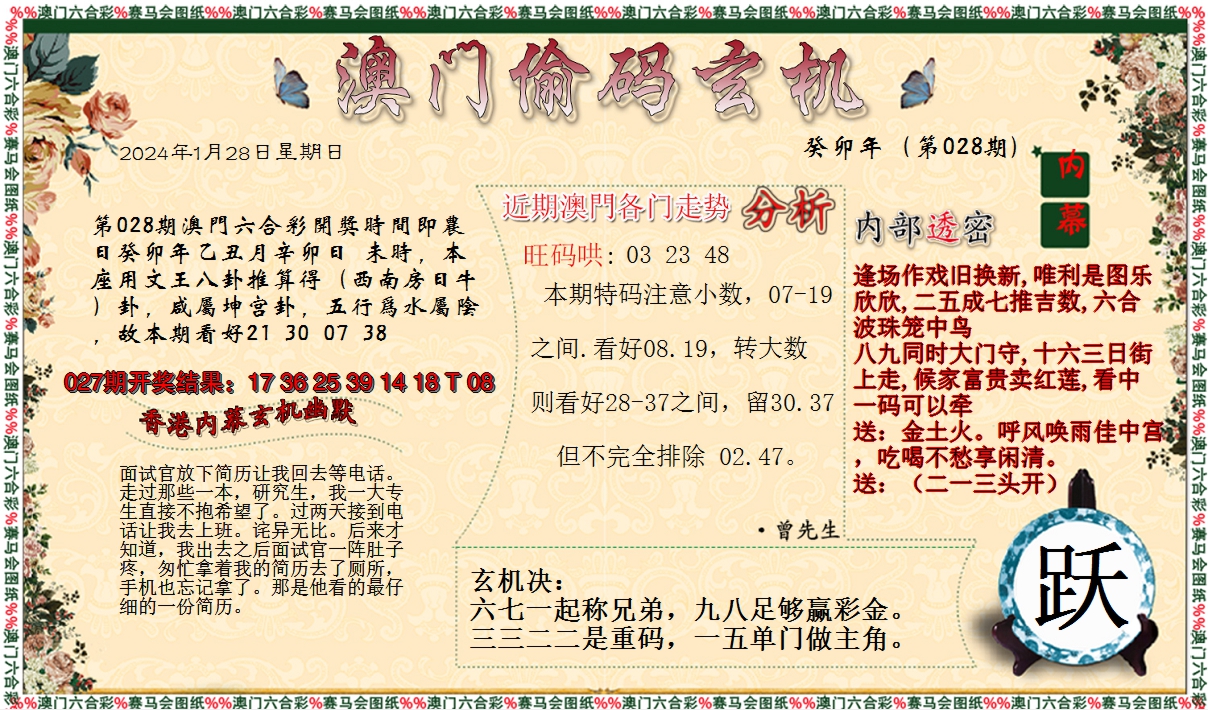 %%澳门六合彩%赛马会图纸%%澳门六合彩%赛马会图纸%%澳门六合彩%赛马会图纸%%澳门六合彩%赛马会图纸%%澳门六合彩%赛马会图纸%%澳门六合彩%赛马会图纸%%
澳门偷码玄机
2024年1月28日星期日
癸卯年（第028期）
第028期澳門六合彩開獎時間即農
日癸卯年乙丑月辛卯日 未時，本
座用文王八卦推算得（西南房日牛
）卦，咸屬坤宫卦，五行爲水屬陰
，故本期看好21 30 07 38
027期开奖结果：17 36 25 39 14 18 T 08
香港内幕玄机幽默
面试官放下简历让我回去等电话。
走过那些一本，研究生，我一大专
生直接不抱希望了。过两天接到电
话让我去上班。诧异无比。后来才
知道，我出去之后面试官一阵肚子
疼，匆忙拿着我的简历去了厕所，
手机也忘记拿了。那是他看的最仔
细的一份简历。
近期澳門各门走势 分析
旺码哄: 03 23 48
本期特码注意小数，07-19
之间.看好08.19，转大数
则看好28-37之间，留30.37
但不完全排除 02.47。
·曾先生
玄机决：
六七一起称兄弟，九八足够赢彩金。
三三二二是重码，一五单门做主角。
内幕
内部透密
逢场作戏旧换新,唯利是图乐
欣欣,二五成七推吉数,六合
波珠笼中鸟
八九同时大门守,十六三日街
上走,候家富贵卖红莲,看中
一码可以牵
送：金土火。呼风唤雨佳中宫
，吃喝不愁享闲清。
送：（二一三头开）
跃
%%澳门六合彩%赛马会图纸%%澳门六合彩%赛马会图纸%%澳门六合彩%赛马会图纸%%澳门六合彩%赛马会图纸%%澳门六合彩%赛马会图纸%%澳门六合彩%赛马会图纸%%